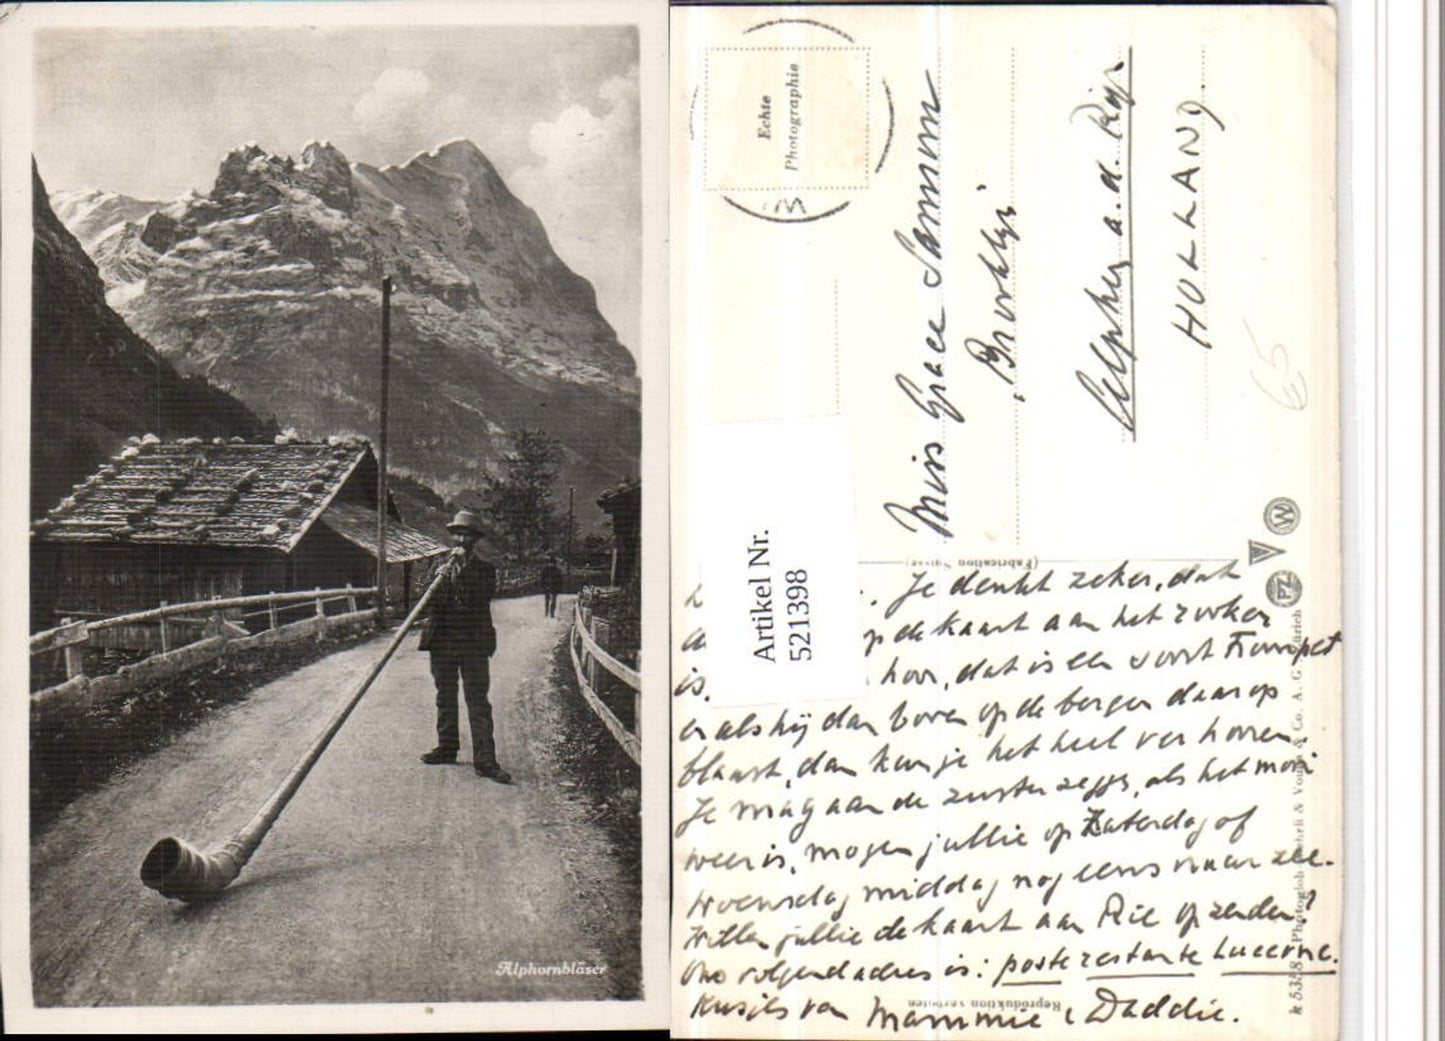 Alphornbläser
Echte
Photographie
Miss Grace
Alphen a.d. Rijn
HOLLAND.
Artikel Nr.
521398
(Fabrication Suisse)
PZ
V
W
Je denkt zeker, dat
op de kaart aan het roken
is. hoor, dat is een soort Trompet
en als hij dan boven op de bergen daarop
blaast, dan kun je het heel ver horen.
Je mag aan de zuster zeggen, als het mooi
weer is, mogen jullie op Zaterdag of
woensdag middag nog eens naar zee.
Willen jullie de kaart aan Rie opzenden?
Ons volgend adres is: poste restante Lucerne.
Kusjes van Mammie & Daddie.
Reproduktion verboten
k 5358 Photoglob-Wehrli & Vouga & Co. A. G. Zürich